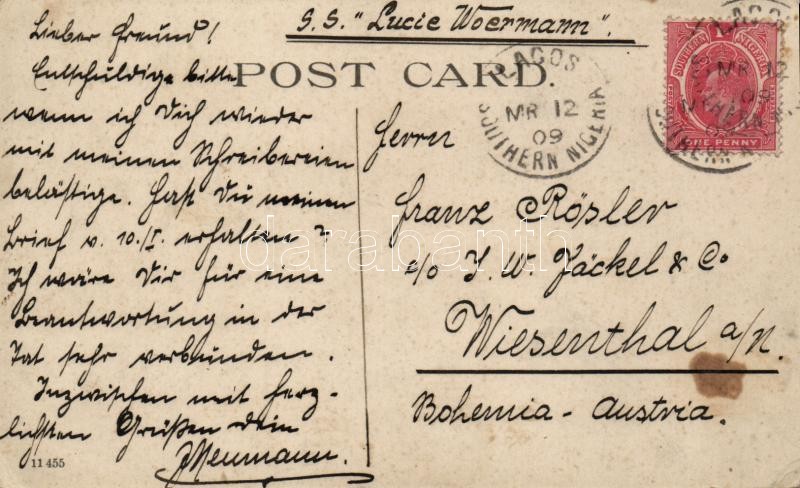 S.S. "Lucie Woermann".
POST CARD.
Lieber Freund!
Entschuldige bitte
wenn ich Dich wieder
mit meinen Schreibereien
belästige. Hast Du meinen
Brief v. 10./I. erhalten?
Ich wäre Dir für eine
Beantwortung in der
Tat sehr verbunden.
Inzwischen mit herz-
lichsten Grüßen Dein
Neumann.
11 455
LAGOS
MR 12
09
SOUTHERN NIGERIA
SOUTHERN NIGERIA
ONE PENNY
LAGOS
MR 12
Herrn
Franz Rösler
c/o J. W. Jäckel & Co
Wiesenthal a/N.
Bohemia - Austria.
darabanth